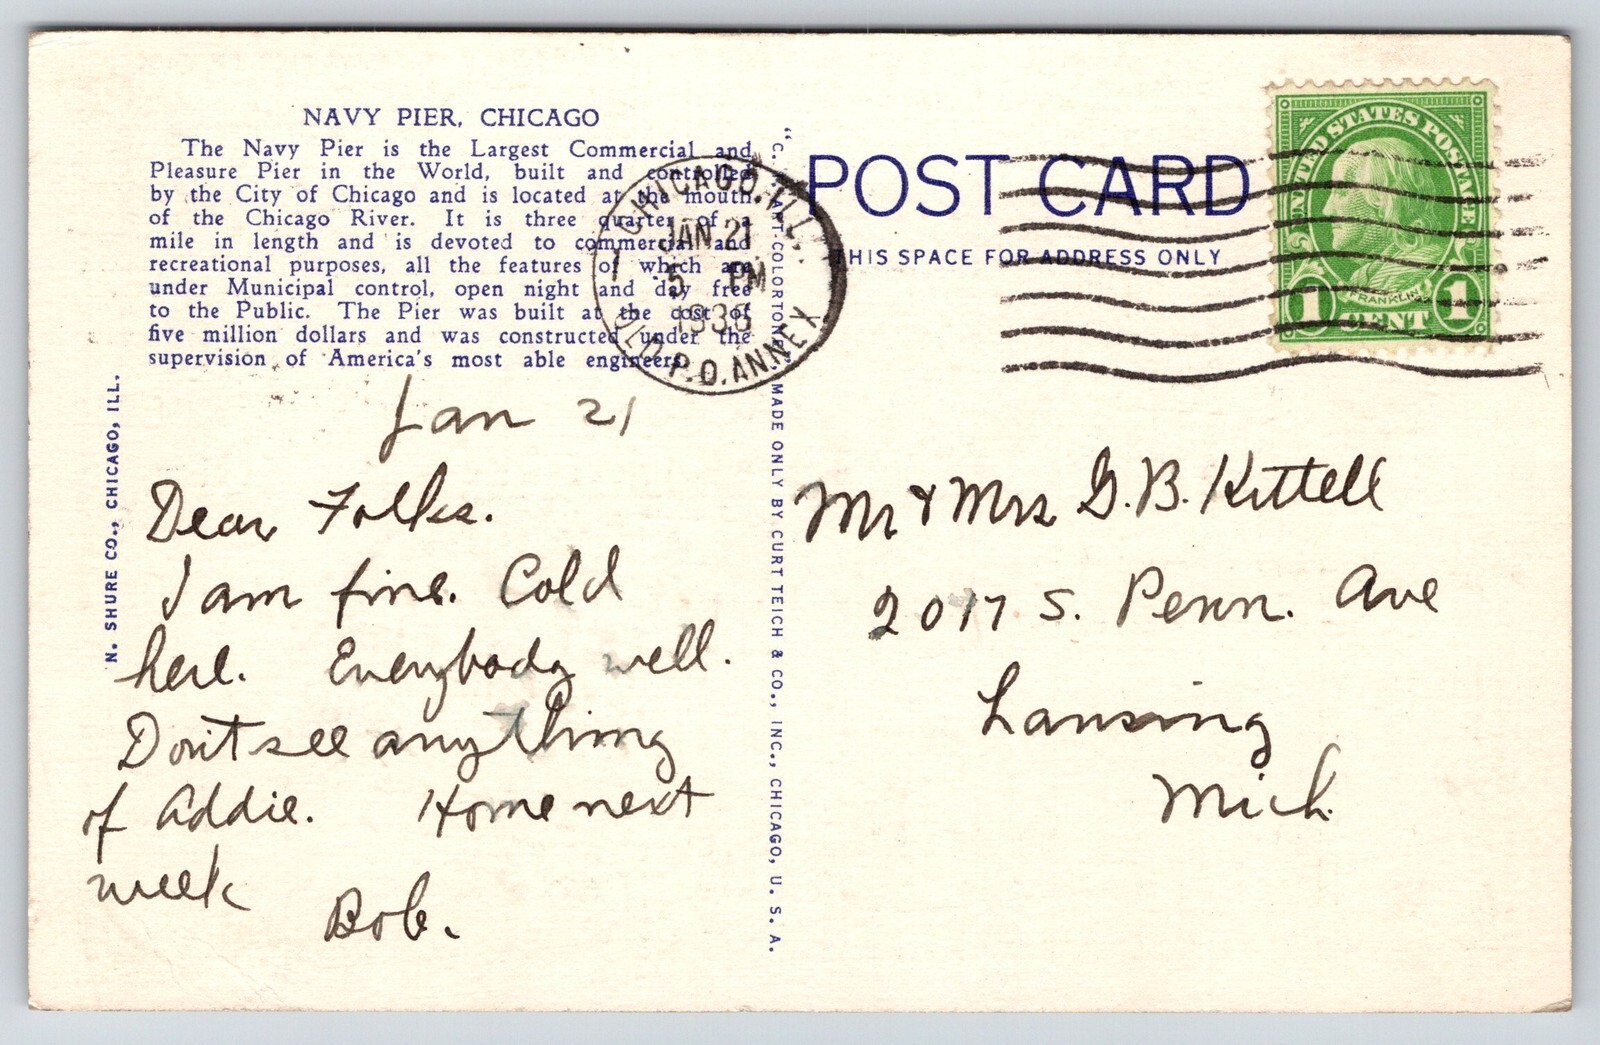 NAVY PIER, CHICAGO
The Navy Pier is the Largest Commercial and
Pleasure Pier in the World, built and controlled
by the City of Chicago and is located at the mouth
of the Chicago River. It is three quarters of a
mile in length and is devoted to commercial and
recreational purposes, all the features of which are
under Municipal control, open night and day free
to the Public. The Pier was built at the cost of
five million dollars and was constructed under the
supervision of America's most able engineers.
N. SHURE CO., CHICAGO, ILL.
Jan 21
Dear Folks.
I am fine. Cold
here. Everybody well.
Don't see anything
of Addie. Home next
week
Bob.
CHICAGO, ILL.
JAN 21
5 PM
P.O. ANNEX
"C. T. ART-COLORTONE" MADE ONLY BY CURT TEICH & CO., INC., CHICAGO, U. S. A.
POST CARD
THIS SPACE FOR ADDRESS ONLY
UNITED STATES POSTAGE
FRANKLIN
1 CENT 1
Mr & Mrs G. B. Kittell
2017 S. Penn. Ave
Lansing
Mich.